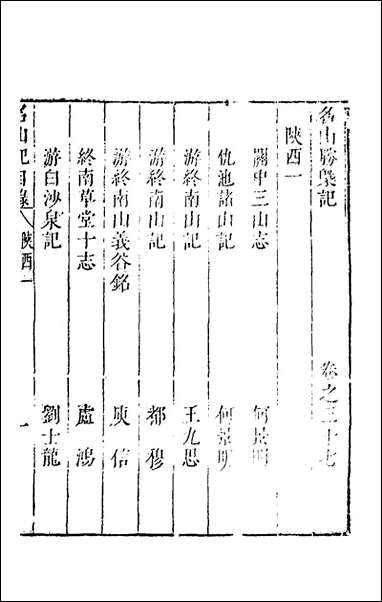 名山勝槩記 卷之三十七
陝西一
關中三山志 何景明
仇池諸山記 何景明
游終南山記 王九思
游終南山記 都穆
游終南山義谷銘 庾信
終南草堂十志 盧鴻
游白沙泉記 劉士龍
名山記目錄 陝西一 一